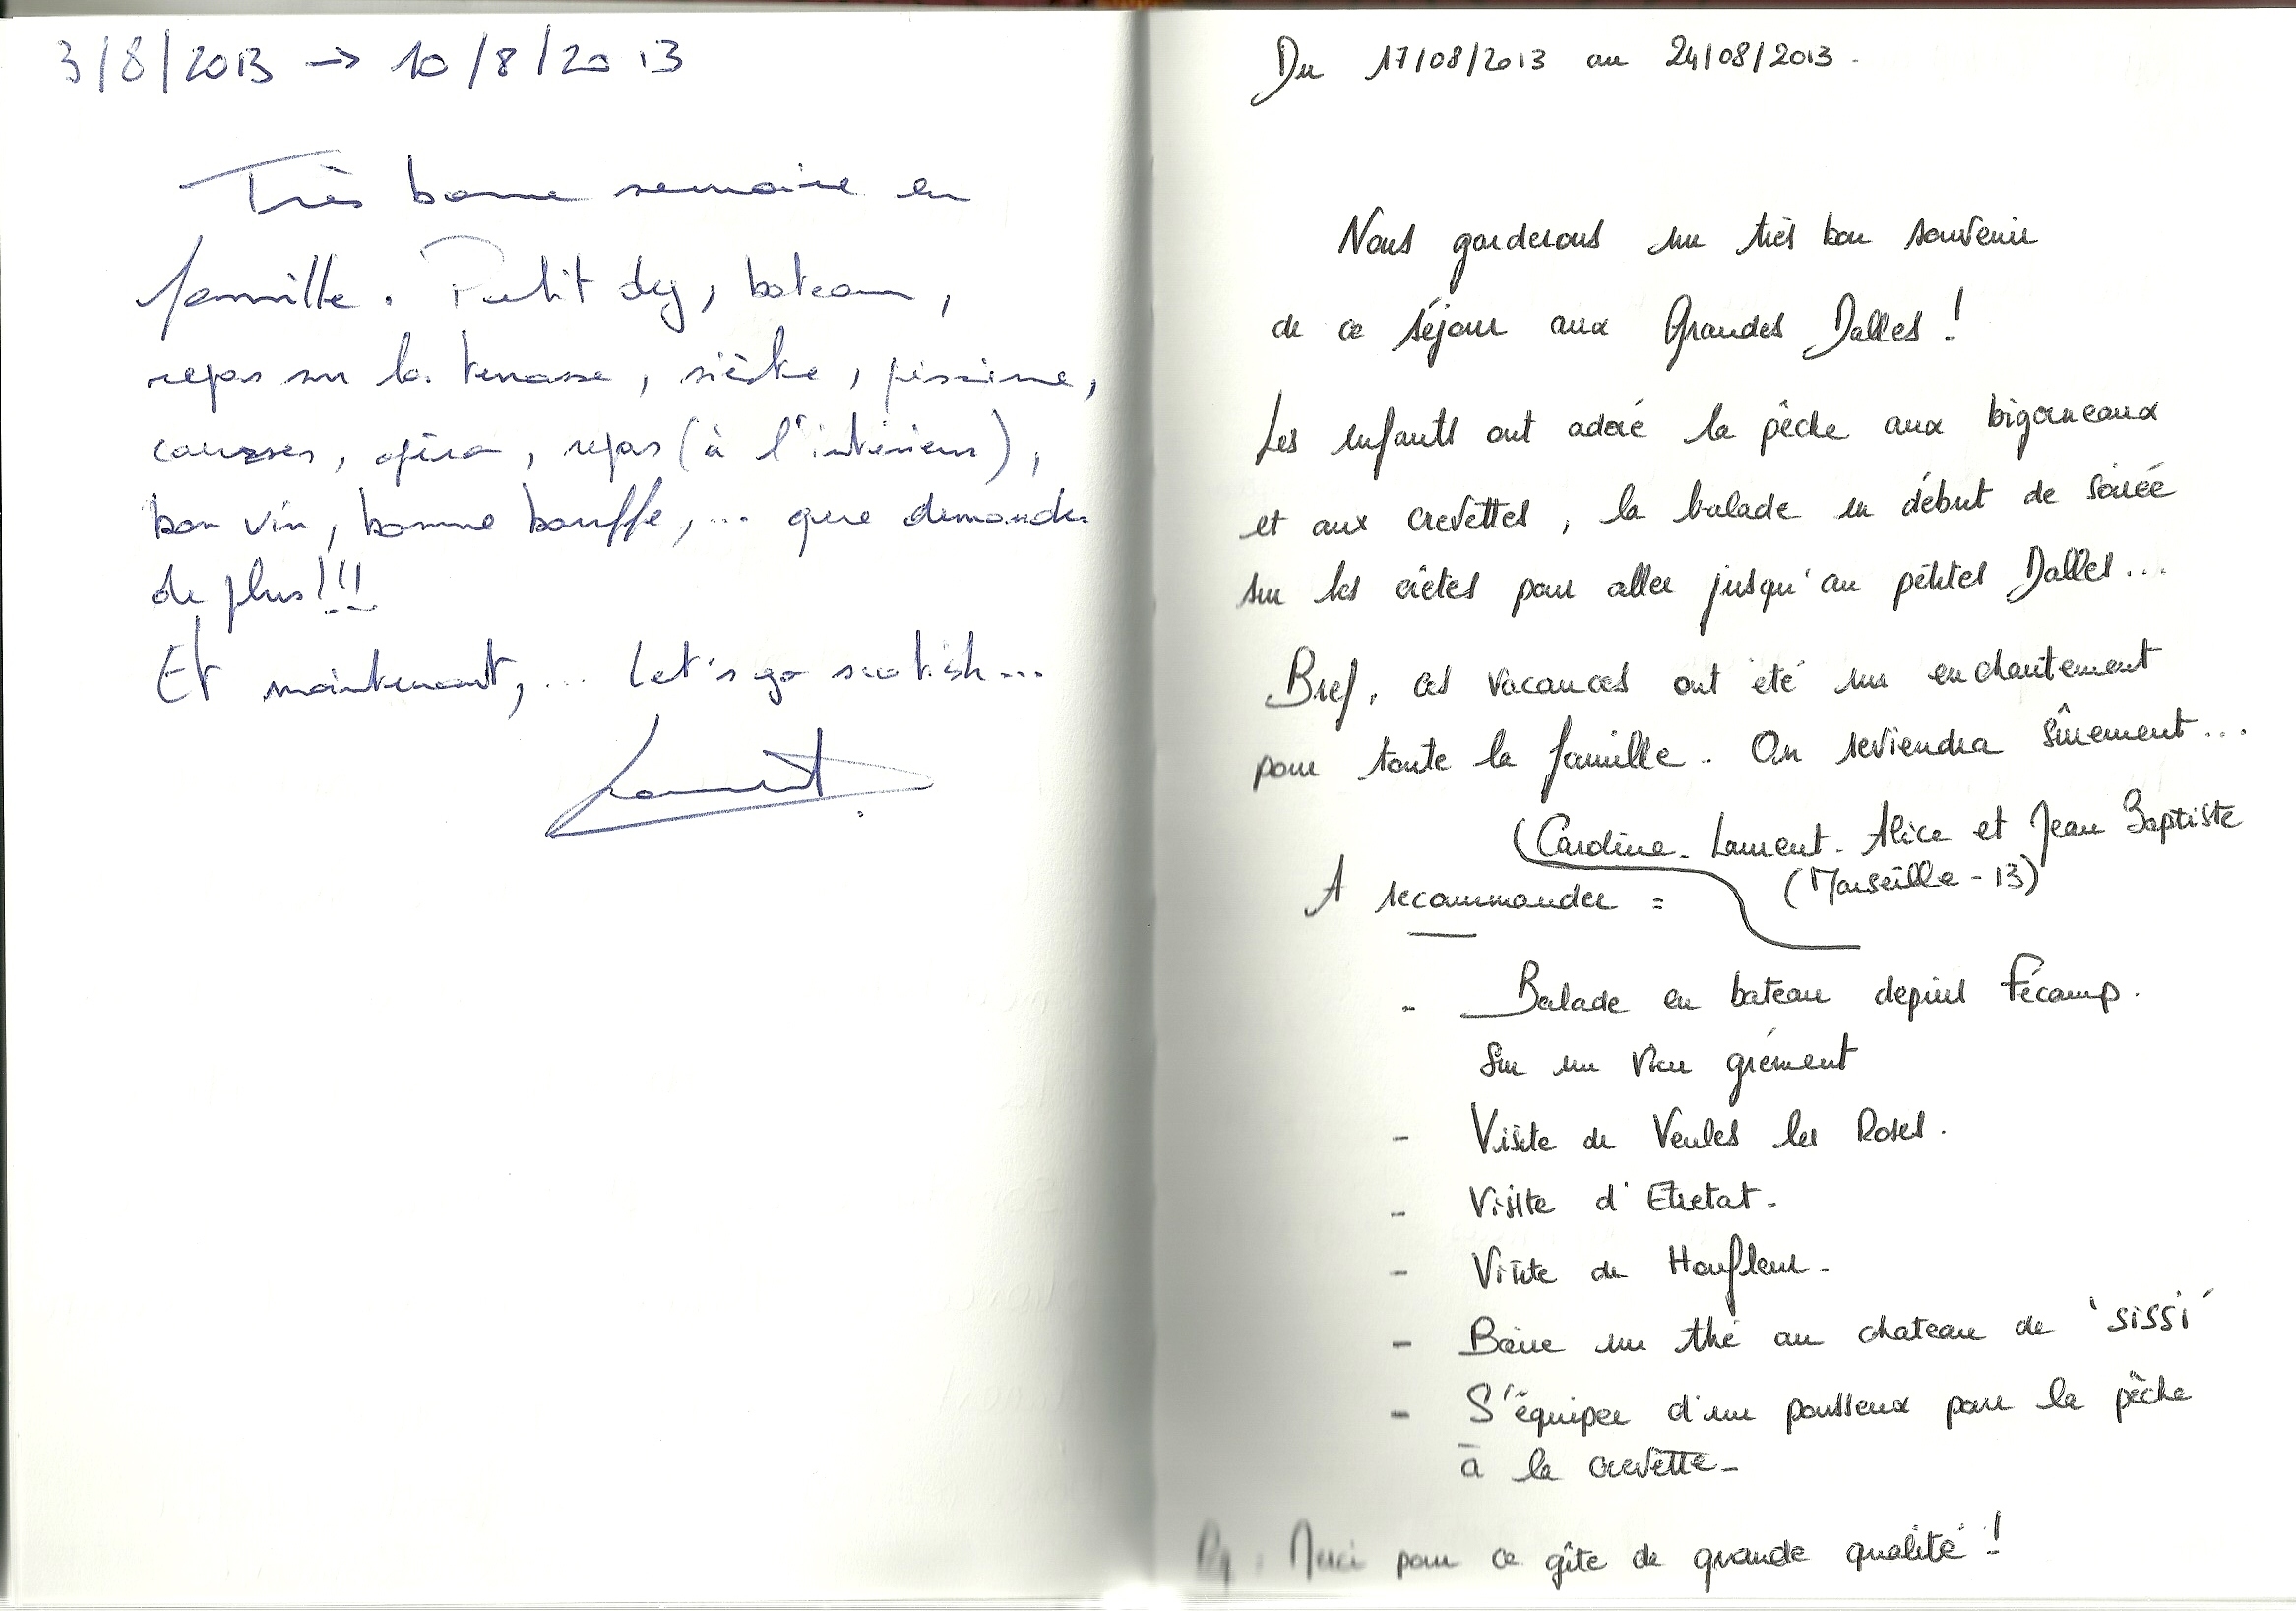 3/8/2013 → 10/8/2013
Très bonne semaine en
famille. Petit dej, bateau,
repas sur la terrasse, sièste, piscine,
courses, apéro, repas (à l'intérieur),
bon vin, bonne bouffe, ... que demander
de plus!!!
Et maintenant, ... Let's go scotish...
Laurent
Du 17/08/2013 au 24/08/2013.
Nous garderons un très bon souvenir
de ce séjour aux Grandes Dalles !
Les enfants ont adoré la pêche aux bigorneaux
et aux crevettes, la balade en début de soirée
sur les crêtes pour aller jusqu'au petites Dalles...
Bref, ces vacances ont été un enchantement
pour toute la famille. On reviendra sûrement...
Caroline. Laurent. Alice et Jean Baptiste
(Marseille - 13)
A recommander :
- Balade en bateau depuis Fécamp.
Sur un vieu grément
- Visite de Veules les Roses.
- Visite d'Etretat.
- Visite de Honfleur.
- Boire un thé au chateau de 'sissi'
- S'équiper d'un pousseux pour la pêche
à la crevette.
Merci pour ce gîte de grande qualité !